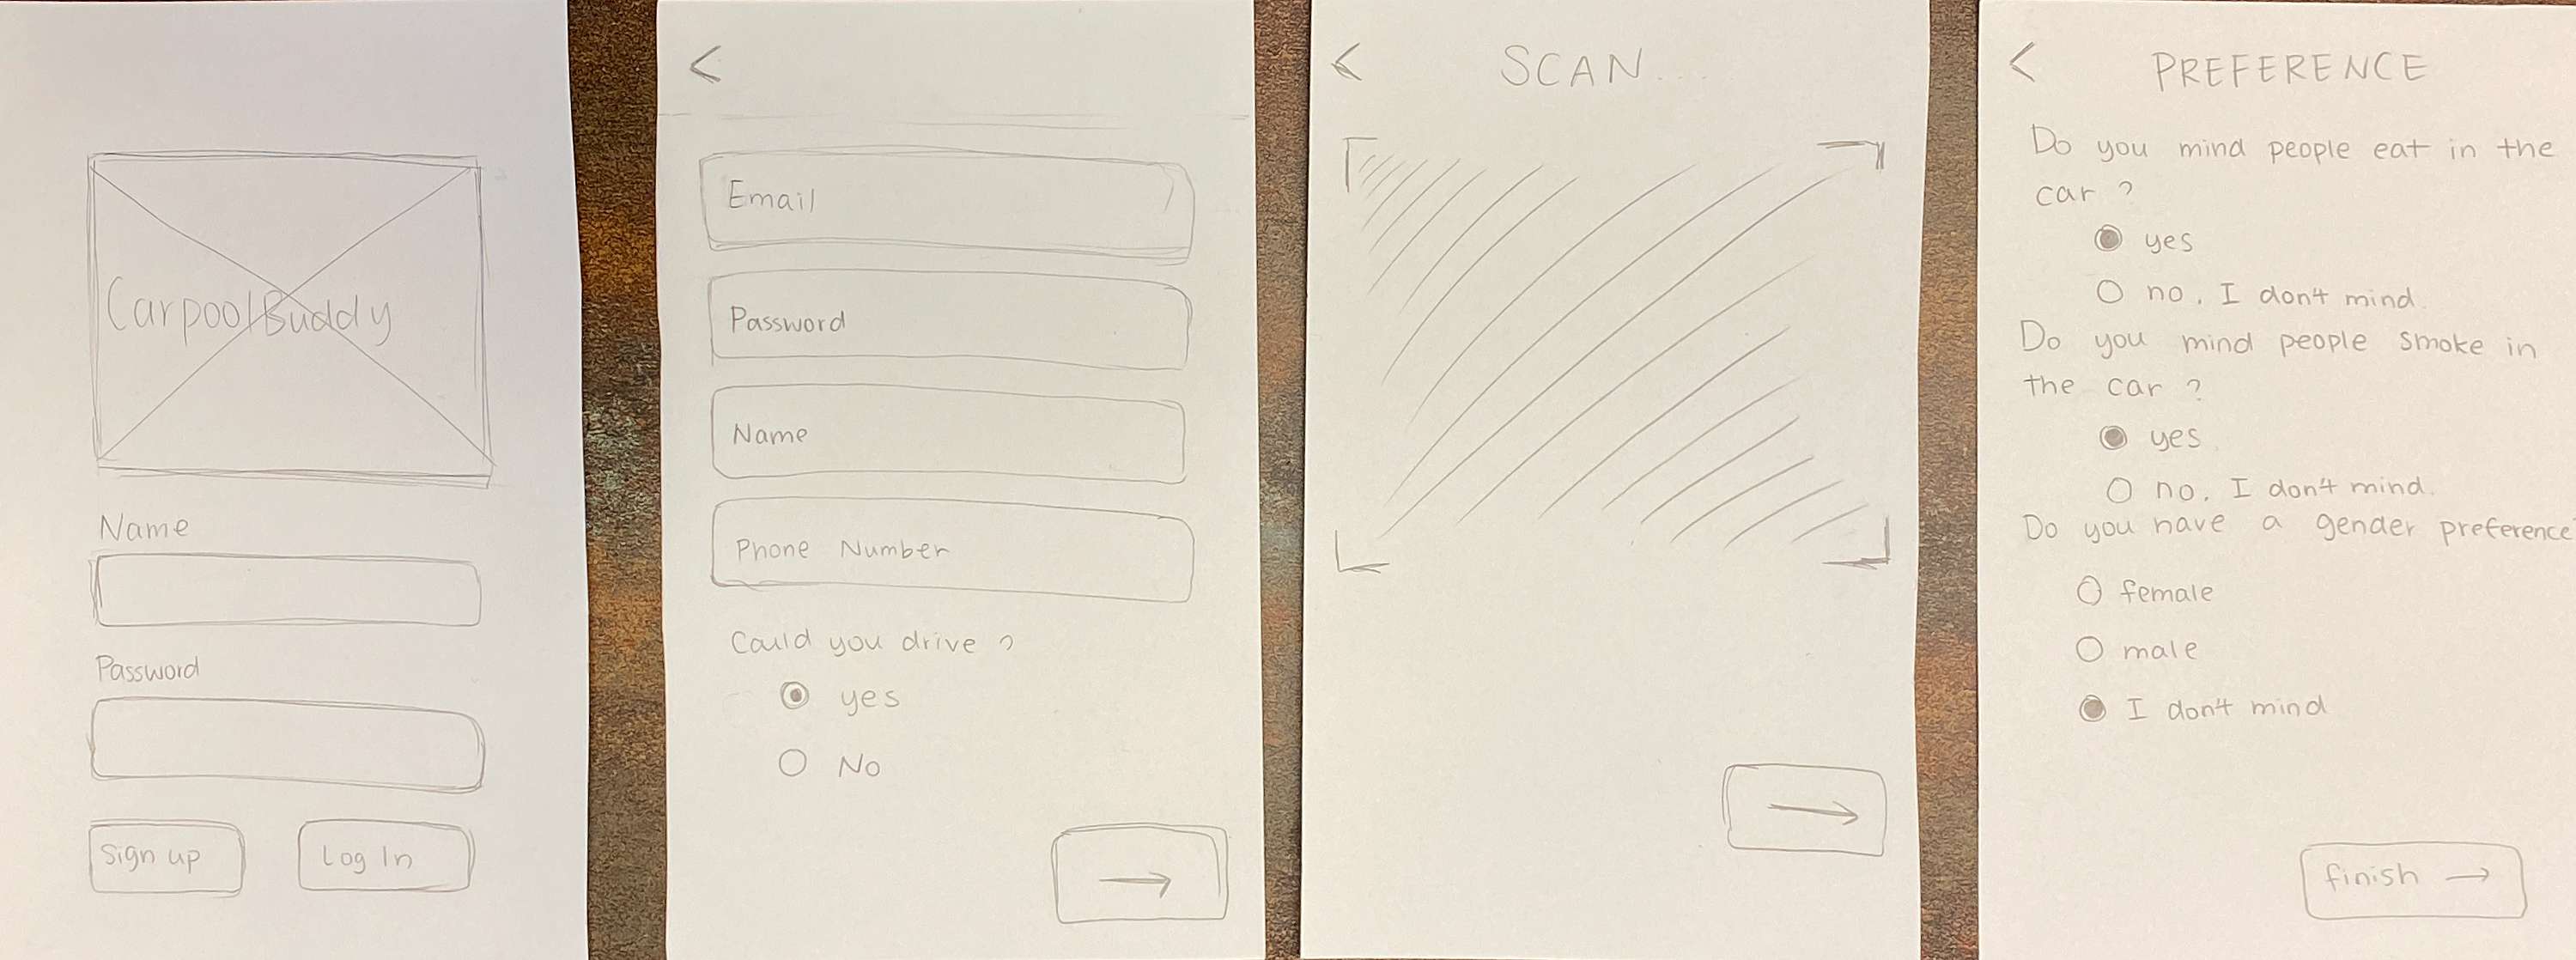 CarpoolBuddy
Name
Password
Sign up
Log In
<
Email
Password
Name
Phone Number
Could you drive ?
yes
No
→
<
SCAN...
→
<
PREFERENCE
Do you mind people eat in the
car ?
yes
no. I don't mind.
Do you mind people smoke in
the car ?
yes
no. I don't mind.
Do you have a gender preference
female
male
I don't mind
finish →